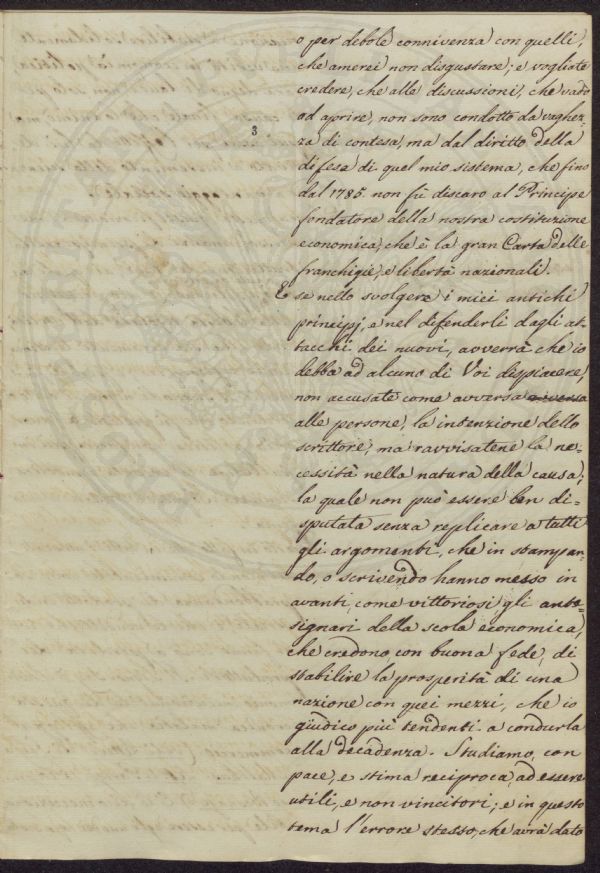 3
o per debole connivenza con quelli,
che amerei non disgustare; e vogliate
credere, che alle discussioni, che vado
ad aprire, non sono condotto da vaghez-
za di contesa, ma dal diritto della
difesa di quel mio sistema, che fino
dal 1785. non fù discaro al Principe
fondatore della nostra costituzione
economica, che è la gran Carta delle
franchigie, e libertà nazionali.
E se nello svolgere i miei antichi
principj, e nel difenderli dagli at-
tacchi dei nuovi, avverrà che io
debba ad alcuno di Voi dispiacere,
non accusate come avversa
alle persone, la intenzione dello
scrittore, ma ravvisatene la ne=
cessità nella natura della causa;
la quale non può essere ben di=
sputata senza replicare a tutti
gli argomenti, che in stampan-
do, o scrivendo hanno messo in
avanti, come vittoriosi, gli ante-
signari della scola economica,
che credono, con buona fede, di
stabilire la prosperità di una
nazione con quei mezzi, che io
giudico più tendenti a condurla
alla decadenza. Studiamo, con
pace, e stima reciproca, ad essere
utili, e non vincitori; e in questo
tema l'errore stesso, che avrà dato